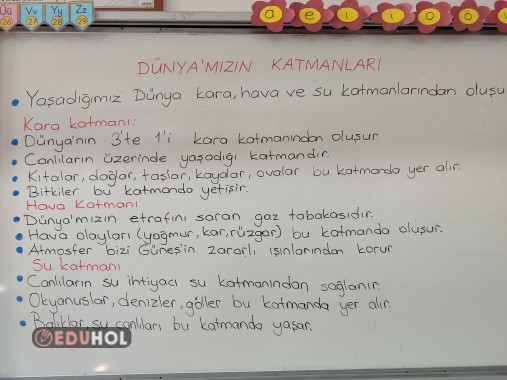 Üü Vv Yy Zz
26 27 28 29
a e ı i o ö u
DÜNYA'MIZIN KATMANLARI
Yaşadığımız Dünya kara, hava ve su katmanlarından oluşu
Kara katmanı:
Dünya'nın 3'te 1'i kara katmanından oluşur
Canlıların üzerinde yaşadığı katmandır.
Kıtalar, dağlar, taşlar, kayalar, ovalar bu katmanda yer alır.
Bitkiler bu katmanda yetişir.
Hava Katmanı
Dünya'mızın etrafını saran gaz tabakasıdır.
Hava olayları (yağmur, kar, rüzgar) bu katmanda oluşur.
Atmosfer bizi Güneş'in zararlı ışınlarından korur
Su katmanı
Canlıların su ihtiyacı su katmanından sağlanır.
Okyanuslar, denizler, göller bu katmanda yer alır.
Balıklar, su canlıları bu katmanda yaşar.
EDUHOL